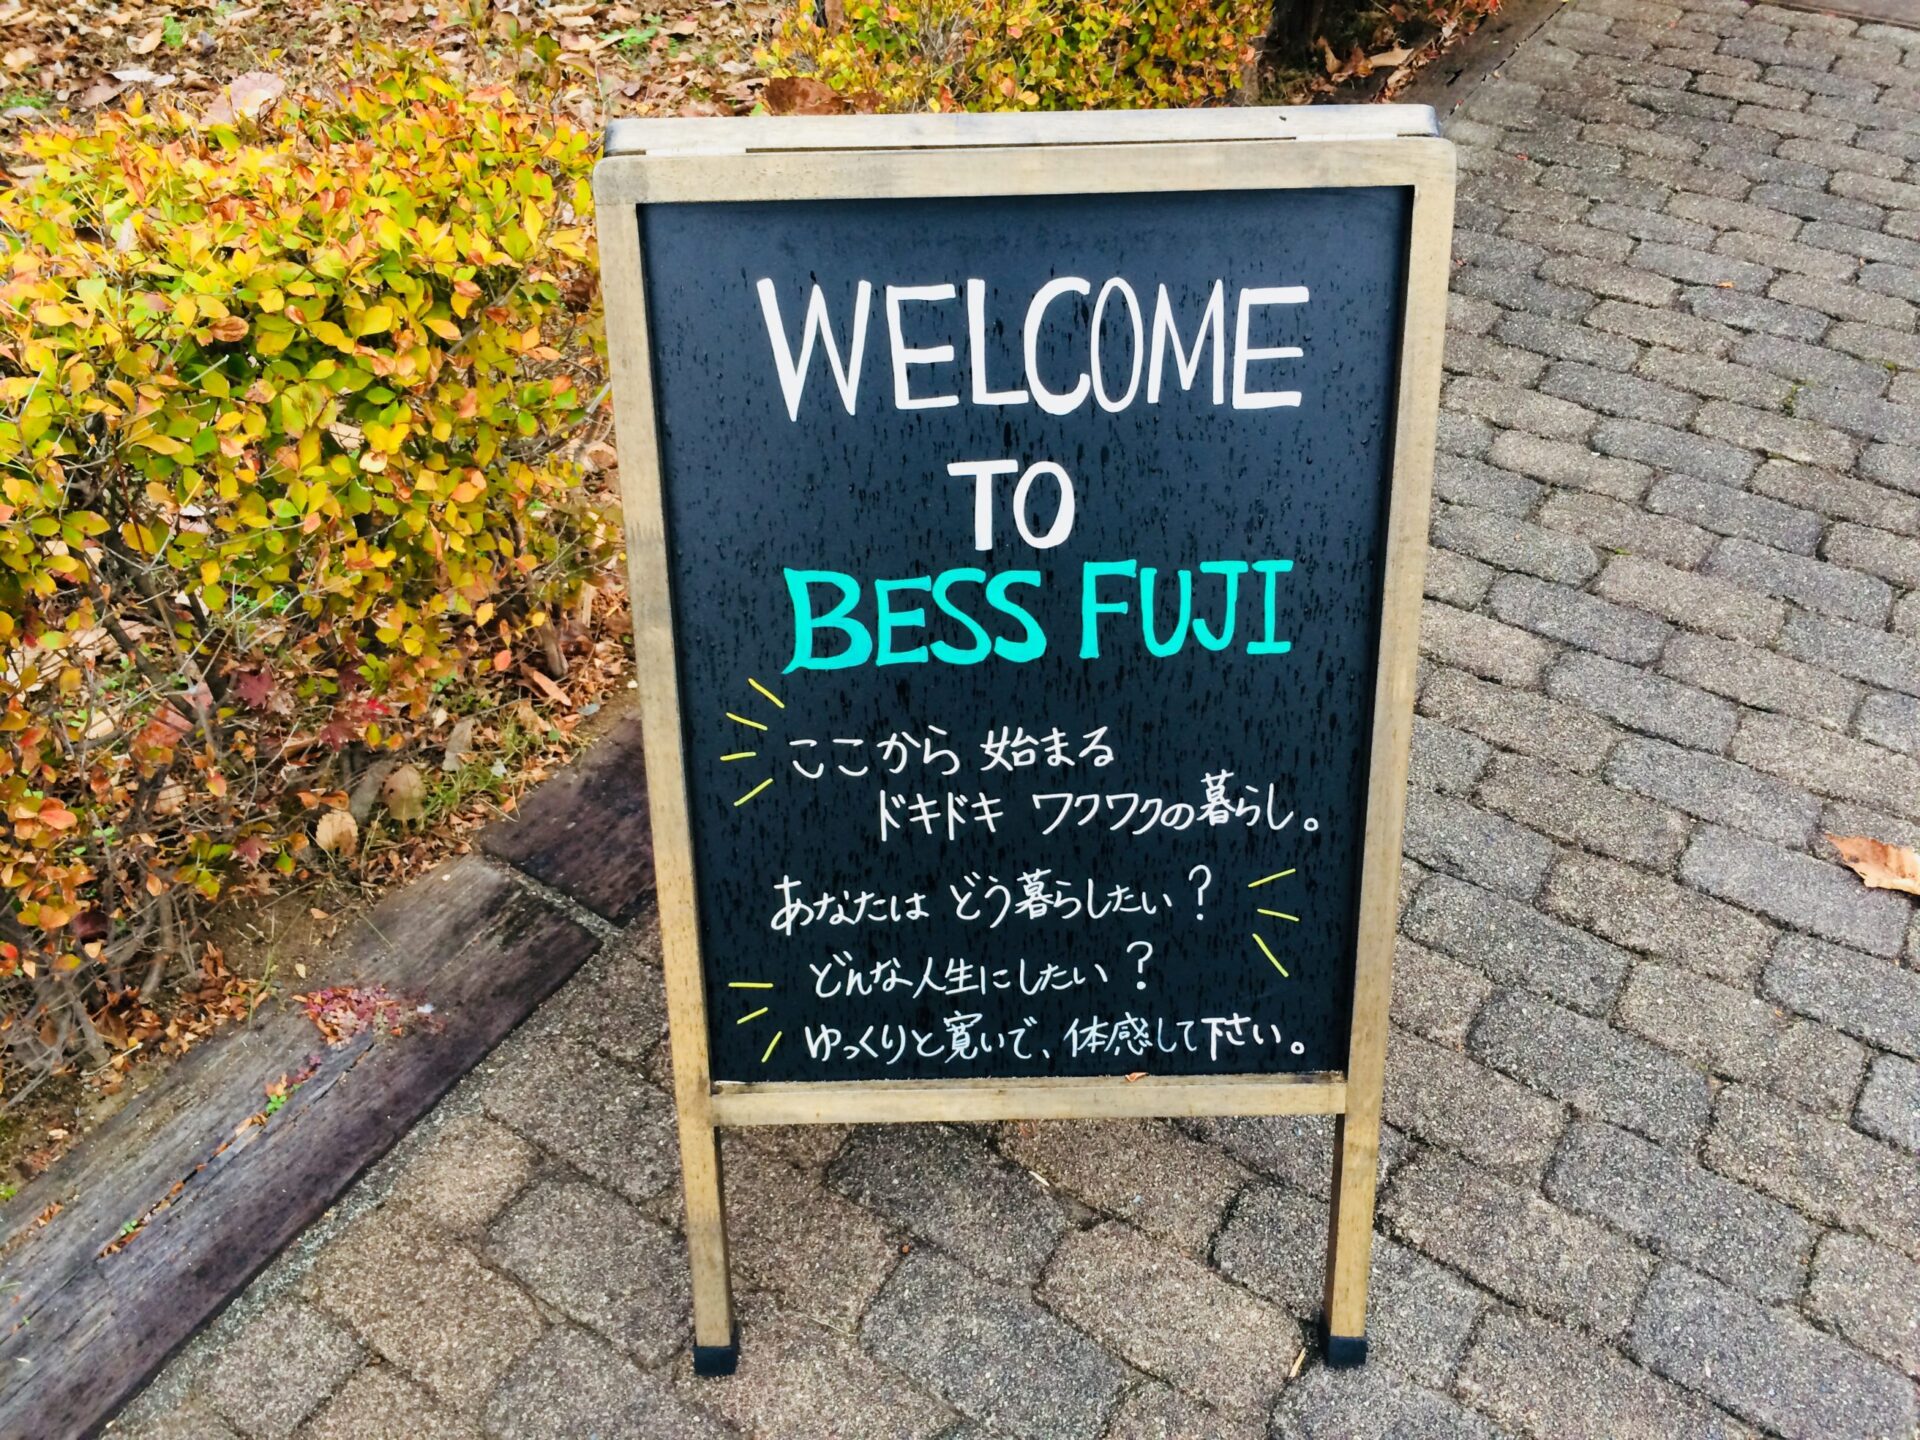 WELCOME
TO
BESS FUJI
ここから 始まる
ドキドキ ワクワクの暮らし。
あなたは どう暮らしたい?
どんな人生にしたい?
ゆっくりと寛いで、体感して下さい。